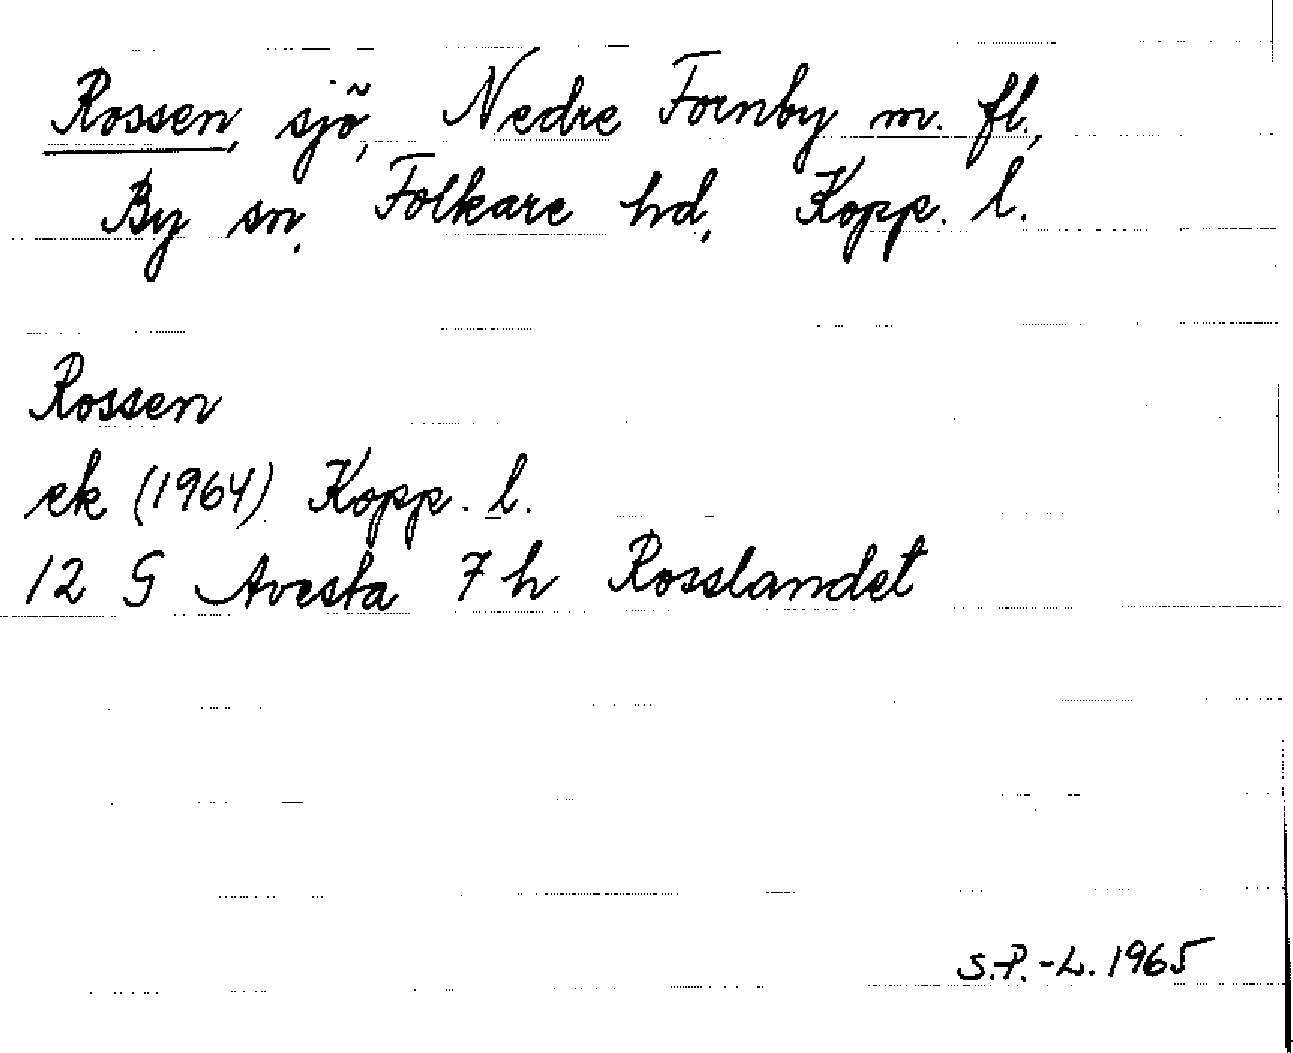 Rossen, sjö, Nedre Fornby m. fl.,
By sn, Folkare hd, Kopp. l.
Rossen
ek (1964) Kopp. l.
12 G Avesta 7 h Rosslandet
S.P.-L. 1965